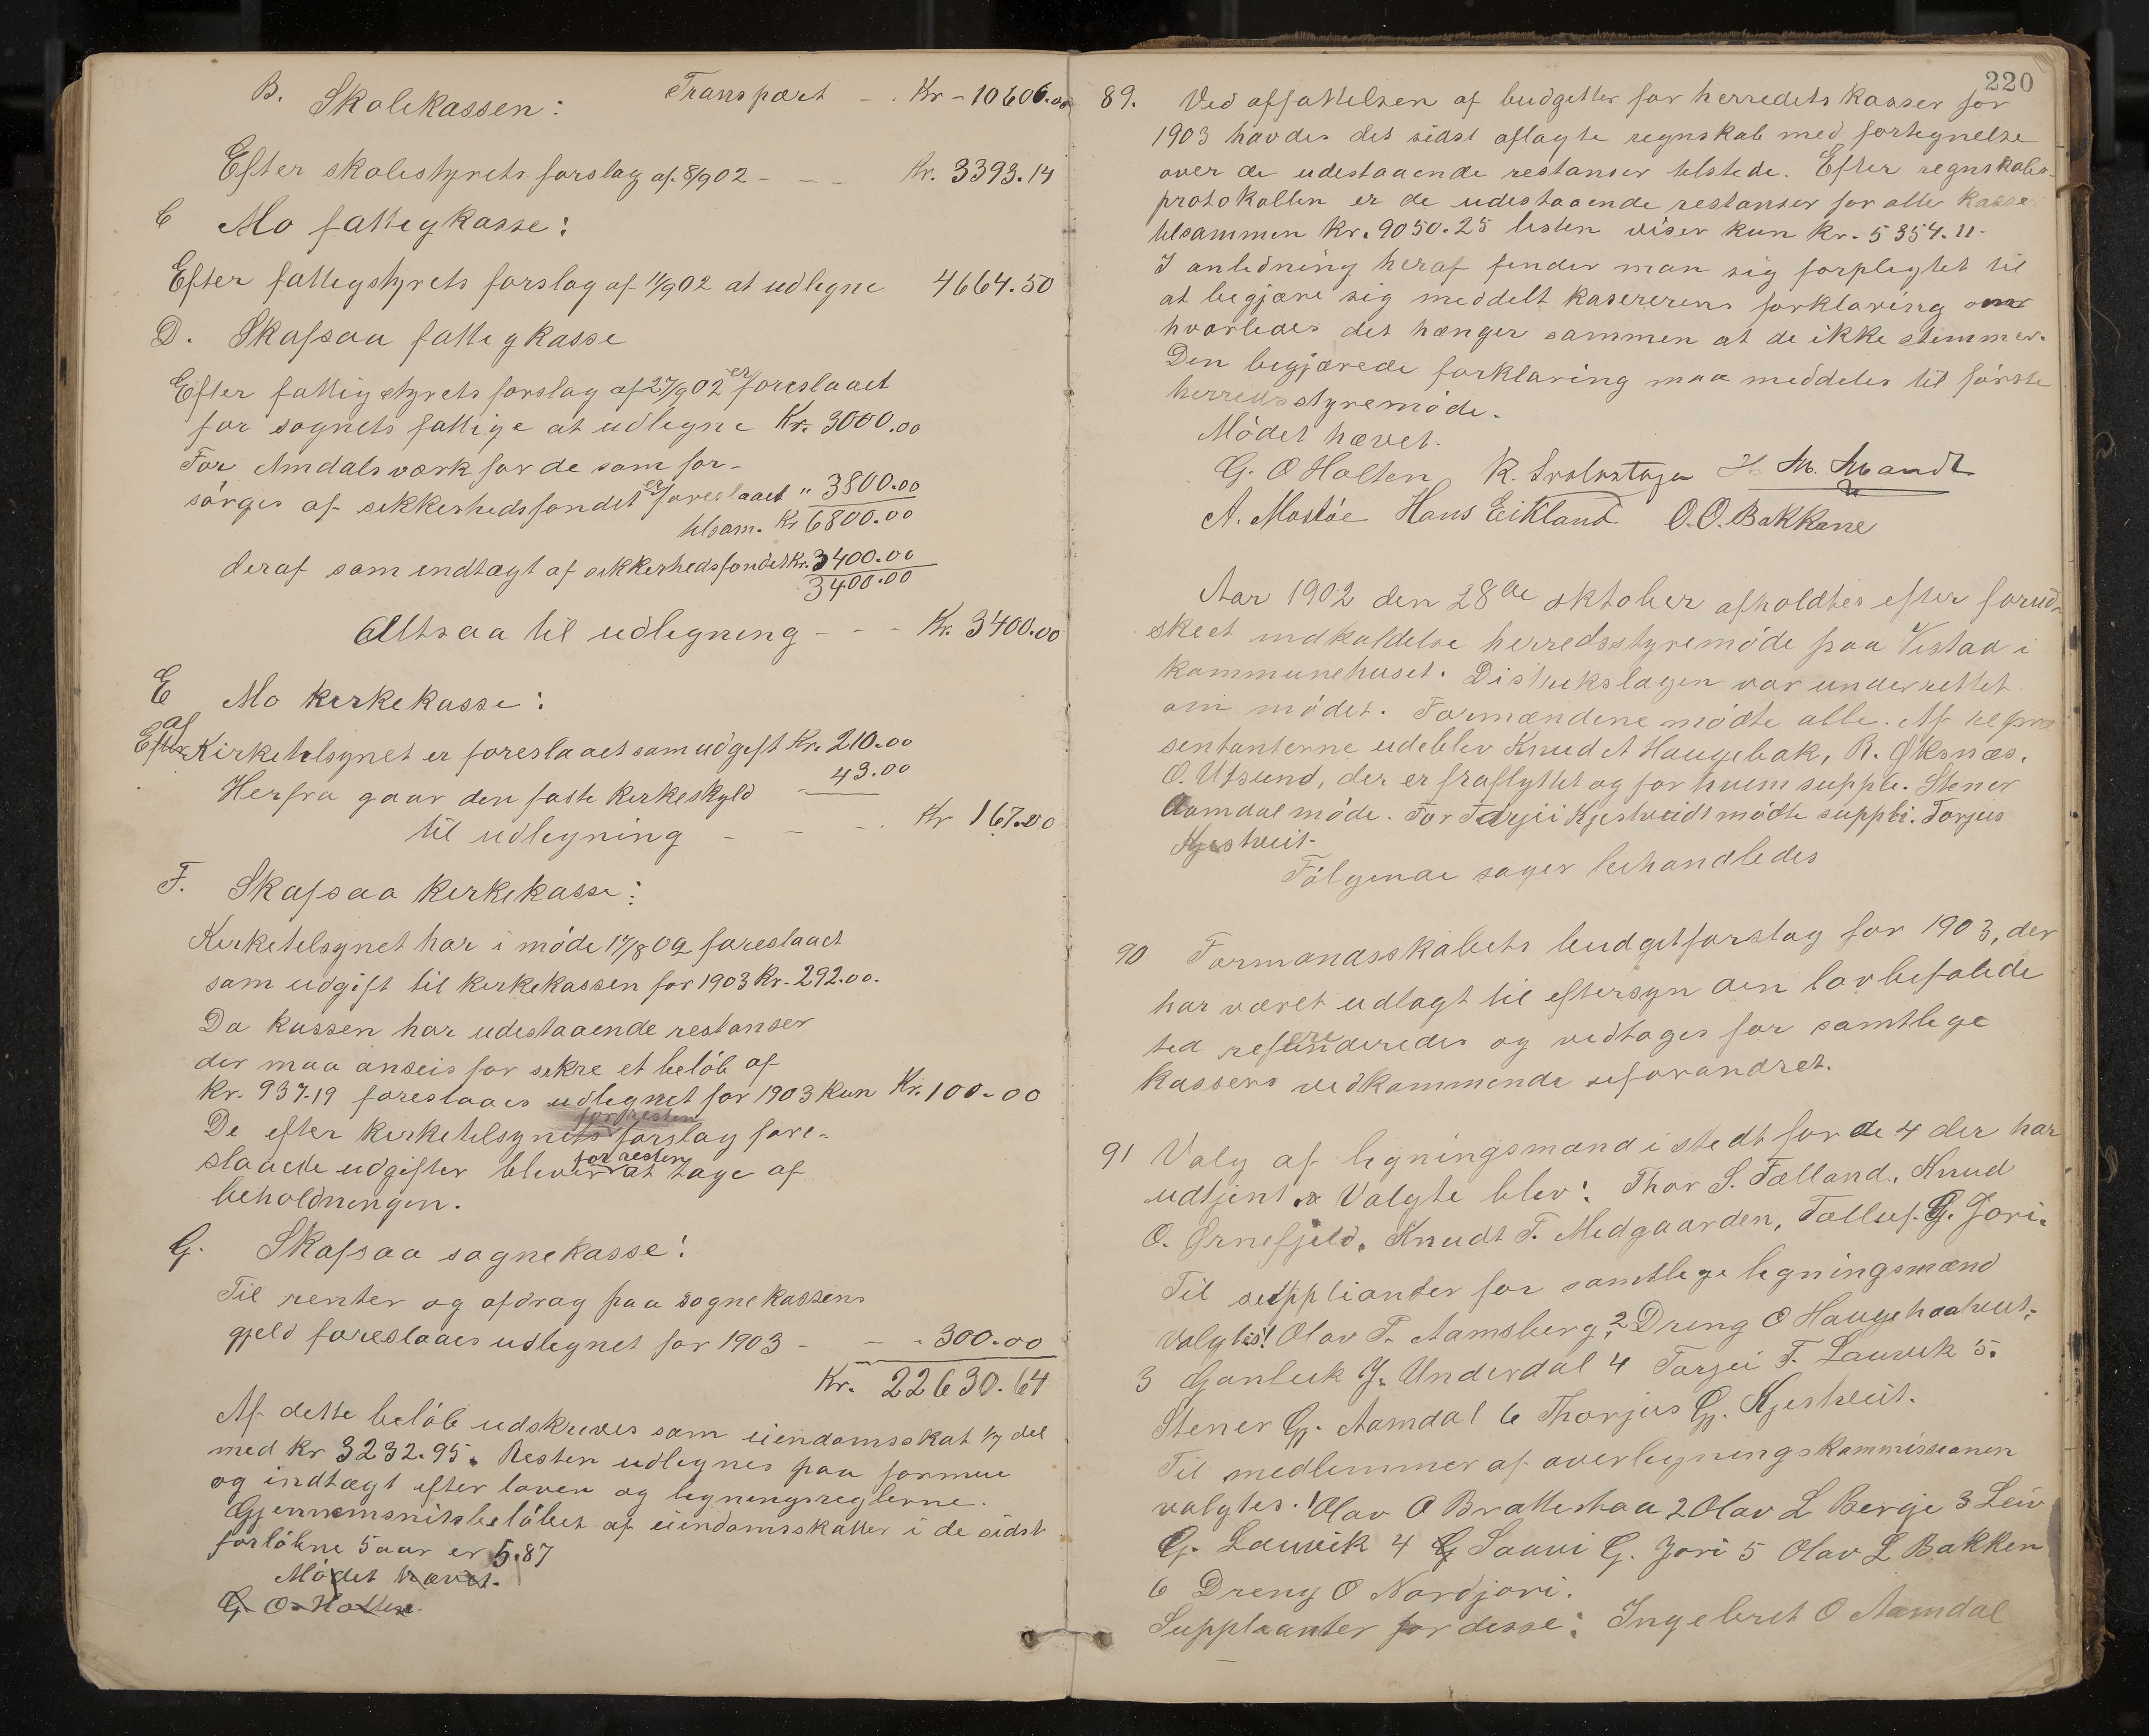 B. Skolekassen: Transport - . Kr - 10606.00
Efter skolestyrets forslag af 8/9 02 - - - Kr. 3393.14
C Mo fattigkasse:
Efter fattigstyrets forslag af 11/9 02 at udlegne 4664.50
D. Skafsaa fattigkasse
Efter fattigstyrets forslag af 27/9 02 er foreslaaet
for sognets fattige at udlegne Kr. 3000.00
For Amdals værk for de som for-
sørges af sikkerhedsfondet er foreslaaet " 3800.00
tilsam. Kr 6800.00
deraf som indtægt af sikkerhedsfondet Kr. 3400.00
3400.00
Altsaa til udlegning - - - Kr. 3400.00
E Mo kirkekasse:
Efter af Kirketilsynet er foreslaaet som udgift Kr. 210.00
Herfra gaar den faste kirkeskyld 43.00
til udlegning - - - Kr 167.00
F. Skafsaa kirkekasse:
Kirketilsynet har i møde 17/8 02 foreslaaet
som udgift til kirkekassen for 1903 Kr. 292.00.
Da kassen har udestaaende restanser
der maa anseis for sikre et beløb af
Kr. 937.19 foreslaaes udlegnet for 1903 kun Kr. 100.00
De efter kirketilsynets forslag fore-
slaaede udgifter bliver for resten at tage af
beholdningen.
G. Skafsaa sognekasse:
Til renter og afdrag paa sognekassens
gjeld foreslaaes udlegnet for 1903 - - - 300.00
Kr. 22630.64
Af dette beløb udskrives som eiendomsskat 1/7 del
med Kr 3232.95. Resten udlegnes paa formue
og indtægt efter loven og legningsreglerne.
Gjennemsnitsbeløbet af eiendomsskatter i de sidst
forløbne 5 aar er 5.87
Mødet hævet.
G. O. Holten.
220
89. Ved affattelsen af budgetter for herredets kasser for
1903 havdes det sidst aflagte regnskab med fortegnelse
over de udestaaende restanser tilstede. Efter regnskabs-
protokollen er de udestaaende restanser for alle kasser
tilsammen Kr. 9050.25 listen viser kun Kr. 5354.11.
I anledning heraf finder man sig forpligtet til
at begjære sig meddelt kasererens forklaring om
hvorledes det hænger sammen at de ikke stemmer.
Den begjærede forklaring maa meddeles til første
herredsstyremøde.
Mødet hævet.
G. O Holten M. Mandt
A. Mostøe Hans Eikland O. O. Bakkane
Aar 1902 den 28de oktober afholdtes efter forud-
skeet indkaldelse herredsstyremøde paa Vistaa i
kommunehuset. Distrikslægen var underrettet
om mødet. Formændene mødte alle. Af repræ
sentanterne udeblev Knud A Haugebak, R. Øksnæs.
O. Ufsund, der er fraflyttet og for hvem suppl. Stener
Aamdal møde. For Tarjei Kjestveidt mødte suppl. Torjus
Kjestveit.
Følgende sager behandledes
90 Formandsskabets budgetforslag for 1903, der
har været udlagt til eftersyn den lovbefalede
tid refereredes og vedtages for samtlige
kassers vedkommende uforandret.
91 Valg af legningsmænd istedt for de 4 der har
udtjent. Valgte blev: Thor S. Fælland, Knud
O. Ørnefjeld. Knudt T. Midgaarden, Tallef G. Jori.
Til suppliander for samtlige legningsmænd
valgtes! Olav T. Aamsberg, 2 Dreng O Haugehaatveit,
3 Gunleik J. Underdal 4 Tarjei T. Lauvik 5.
Stener G. Aamdal 6 Thorjus G. Kjestveit.
Til medlemmer af overlegningskommissionen
valgtes. 1 Olav O Brattestaa 2 Olav L Berge 3 Leiv
G. Lauvik 4 Saavi G. Jori 5 Olav L Bakken
6 Dreng O Nordjori.
Supplianter for desse: Ingebret O Aamdal